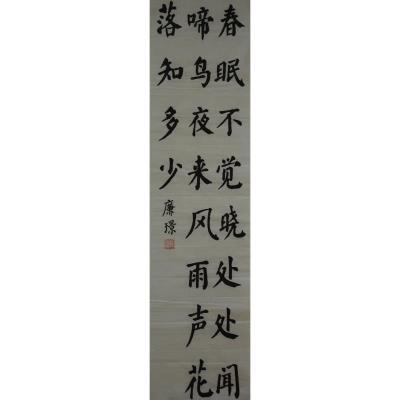 春眠不觉晓处处闻
啼鸟夜来风雨声花
落知多少
廉璟